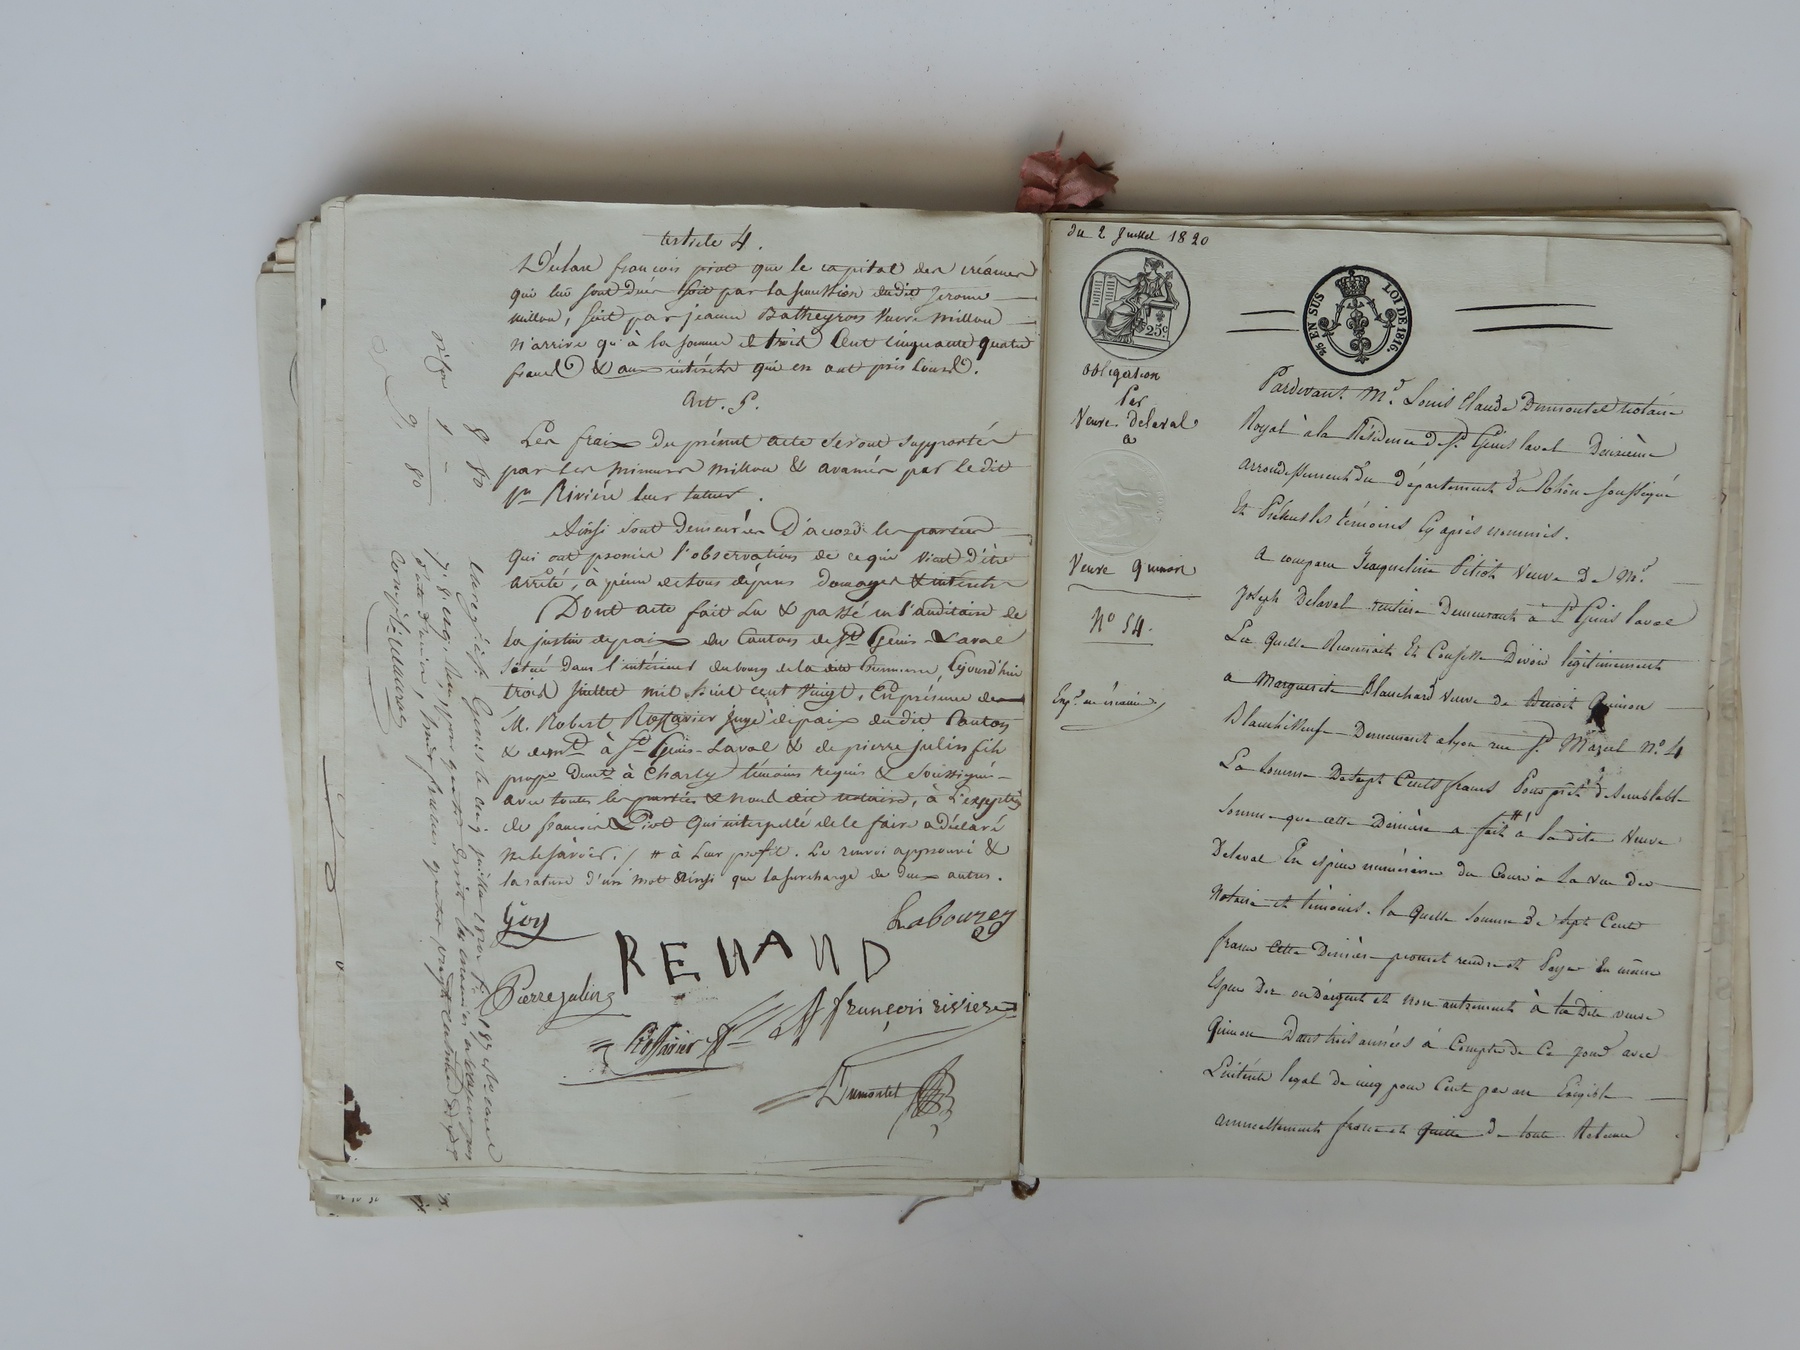 article 4.
Déclare françois pivot que le capital des créances
qui lui sont dues soit par la succession dudit Jerome
millou, soit par jeanne Batheyron Veuve Millou
n'arrive qu'à la somme de trois Cent cinquante quatre
francs & aux intérêts qui en ont pris Cours.
Art. 5.
Les fraix du présent acte seront supportés
par les mineurs millou & avancés par le dit
Sr Rivière leur tuteur.
Ainsi sont demeurées D'acord les parties
qui ont promis l'observation de ce qui vient d'être
arrêté, à peine de tous dépens domages & intérêts
Dont acte fait Lu & passé en l'auditoire de
la justice de paix du Canton de St Genis-Laval
situé dans l'intérieur du bourg de la dite Commune, Cejourd'hui
trois juillet mil huit cent vingt, En présence de
M. Robert Rossavier juge de paix dudit Canton
& demt à St Genis-Laval & de pierre julin fils
proppre demt à Charly témoins requis & soussignés
avec toutes les parties & nous dit notaire, à l'exception
de francois Pivot qui interpellé de le faire a déclaré
ne le savoir. / # à leur profit. Le renvoi approuvé &
la rature d'un mot ainsi que la surcharge de deux autres.
Goy
Labourey
RENAND
Pierre julin
françois rivière
Rossavier
Dumontet
8 80
1 -
9, 80
Enregistré à St Genis le cinq juillet 1820 fo 187
du 2 Juillet 1820
25c
5/5 EN SUS LOI DE 1816.
obligation
Par
Veuve Delaval
a
Veuve Quinon
No 54.
Pardevant Me Louis Claude Dumontet notaire
Royal à la Résidence de St Genis laval Deuxième
arrondissement du département du Rhône soussigné
Et Présents les témoins Cy après nommés.
a comparu Jacqueline Pitiot Veuve de Mr
Joseph Delaval rentière Demeurant à St Genis laval
La quelle Reconnoit Et Confesse Devoir légitimement
a Marguerite Blanchard Veuve de Benoit Quinon
Blanchisseuse Demeurant a Lyon rue St Marcel No 4
La Somme De sept Cents francs Pour prêt de Semblable
Somme que cette Dernière a fait # à la dite Veuve
Delaval En espèces numéraires du Cours a La vue des
Notaire et témoins. la quelle somme de Sept Cents
francs cette Dernière promet rendre et Payer En même
Espèces D'or ou D'argent et non autrement à la dite veuve
Quinon Dans trois années à Compter de Ce jour avec
L'intérêt légal de cinq pour Cent par an Exigible
annuellement franc et quitte de toute Retenue